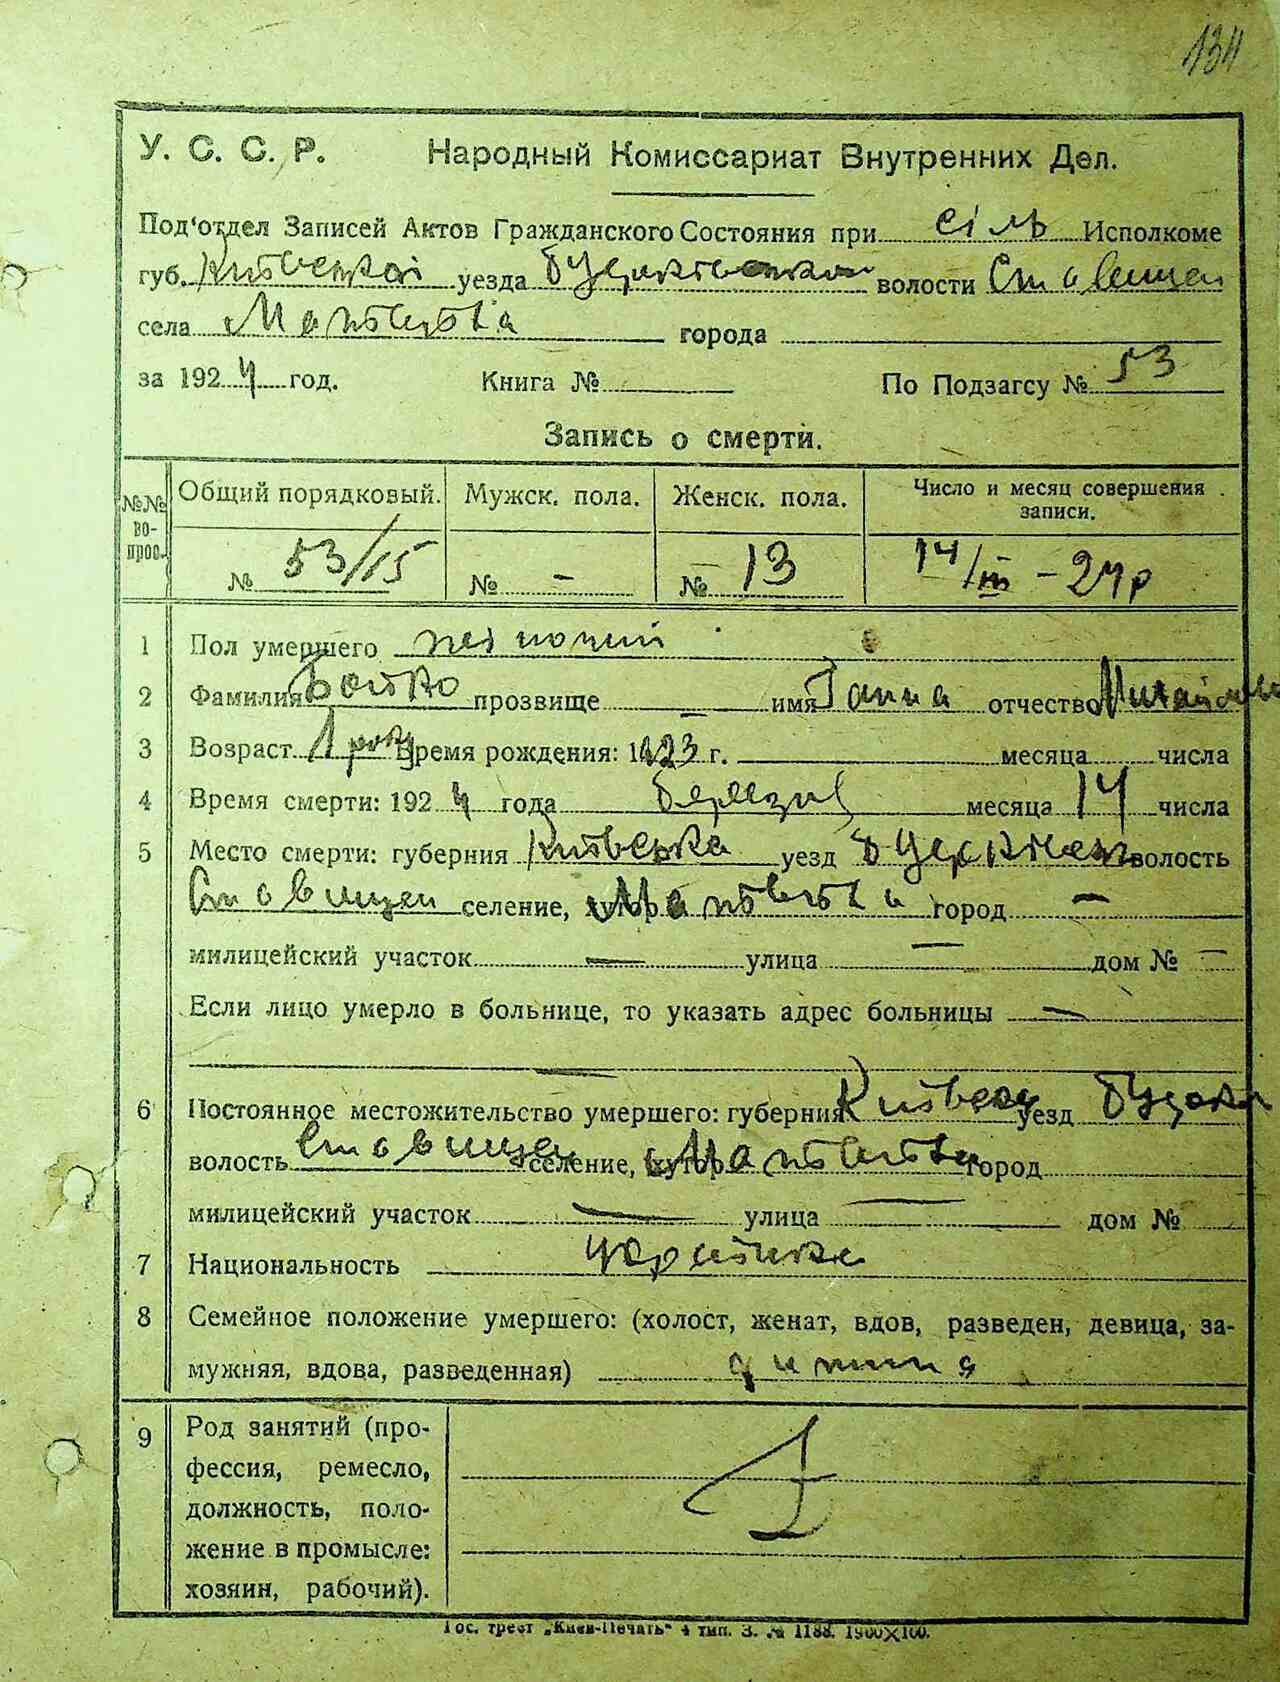 134
У. С. С. Р. Народный Комиссариат Внутренних Дел.
Под'отдел Записей Актов Гражданского Состояния при сіль Исполкоме
губ. Київської уезда Бцерківської волости Ставищен
села города
за 1924 год. Книга № По Подзагсу № 53
Запись о смерти.
№№ во- прос. Общий порядковый. Мужск. пола. Женск. пола. Число и месяц совершения записи.
№ 53/15 № - № 13 14/III - 24р
1 Пол умершего жіночий
2 Фамилия Бойко прозвище - имя Ганна отчество
3 Возраст 1 року Время рождения: 1923 г. месяца числа
4 Время смерти: 1924 года месяца 14 числа
5 Место смерти: губерния Київська уезд Бцерківськ волость
Ставищен селение, хутор город -
милицейский участок - улица - дом № -
Если лицо умерло в больнице, то указать адрес больницы -
6 Постоянное местожительство умершего: губерния Київськ уезд
волость Ставищен селение, хутор город
милицейский участок - улица - дом №
7 Национальность
8 Семейное положение умершего: (холост, женат, вдов, разведен, девица, за-
мужняя, вдова, разведенная) дитина
9 Род занятий (про-
фессия, ремесло,
должность, поло-
жение в промысле:
хозяин, рабочий).
Гос. трест „Киев-Печать" 4 тип. З. № 1188. 1900×100.